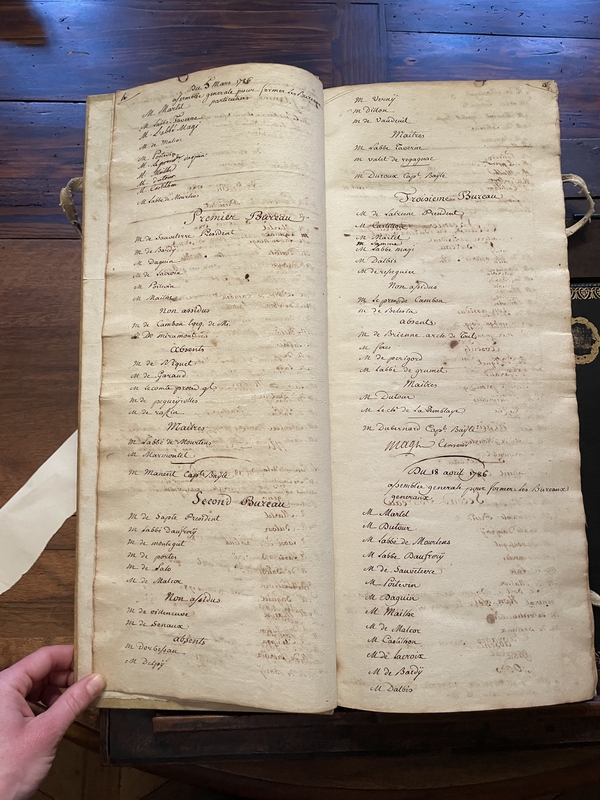 Du 5 Mars 1786
assemblée generale pour former Les Bureaux
particuliers
M. Martel
M. Labbé Taverne
M. Labbé Magi
M. de Malcor
M. Poitevin
M. Castilhon
M. Labbé de Mourlens
Premier Bureau
M de Sauveterre President
M de Bardÿ
M Daguin
M de Lacroix
M Poitevin
M Maithe
Non assidus
M de Cambon
absents
M de Niquet
M de Garaud
M Lecomte
M de pegueyrolles
M de rafin
Maitres
M Labbé de Mourlens
M Marmontel
M Manent Cap.e Bayle
Second Bureau
M de Sapte President
M Labbé Daufrery
M de montegut
M de portes
M de Lalo
M de Malcor
Non assidus
M de videneuve
M de Senaux
absents
M dorbessan
M Delpÿ
M Verny
M Dillon
M de Vaudeuil
Maitres
M Labbé Taverne
M valet de regagnac
M Duroux Cap.e Bayle
Troisieme Bureau
M de Labeune President
M Martel
M Labbé magi
M Dalbis
M de resseguier
Non assidus
M Le presd.t de Cambon
M de Belesta
absents
M de Brienne arch. de Toul.
M fores
M de perigord
M Labbé de grumet
Maitres
M Dutour
M Le ch.er de La Tremblaye
M Dubernard Cap.e Bayle
Magi Censeur
Du 18 avril 1786
assemblée generale pour former Les Bureaux
generaux
M Martel
M Dutour
M Labbé de Mourlens
M Labbé Daufrery
M de Sauveterre
M Poitevin
M Daguin
M Maithe
M de Malcor
M Castilhon
M de Lacroix
M de Bardÿ
M Dalbis